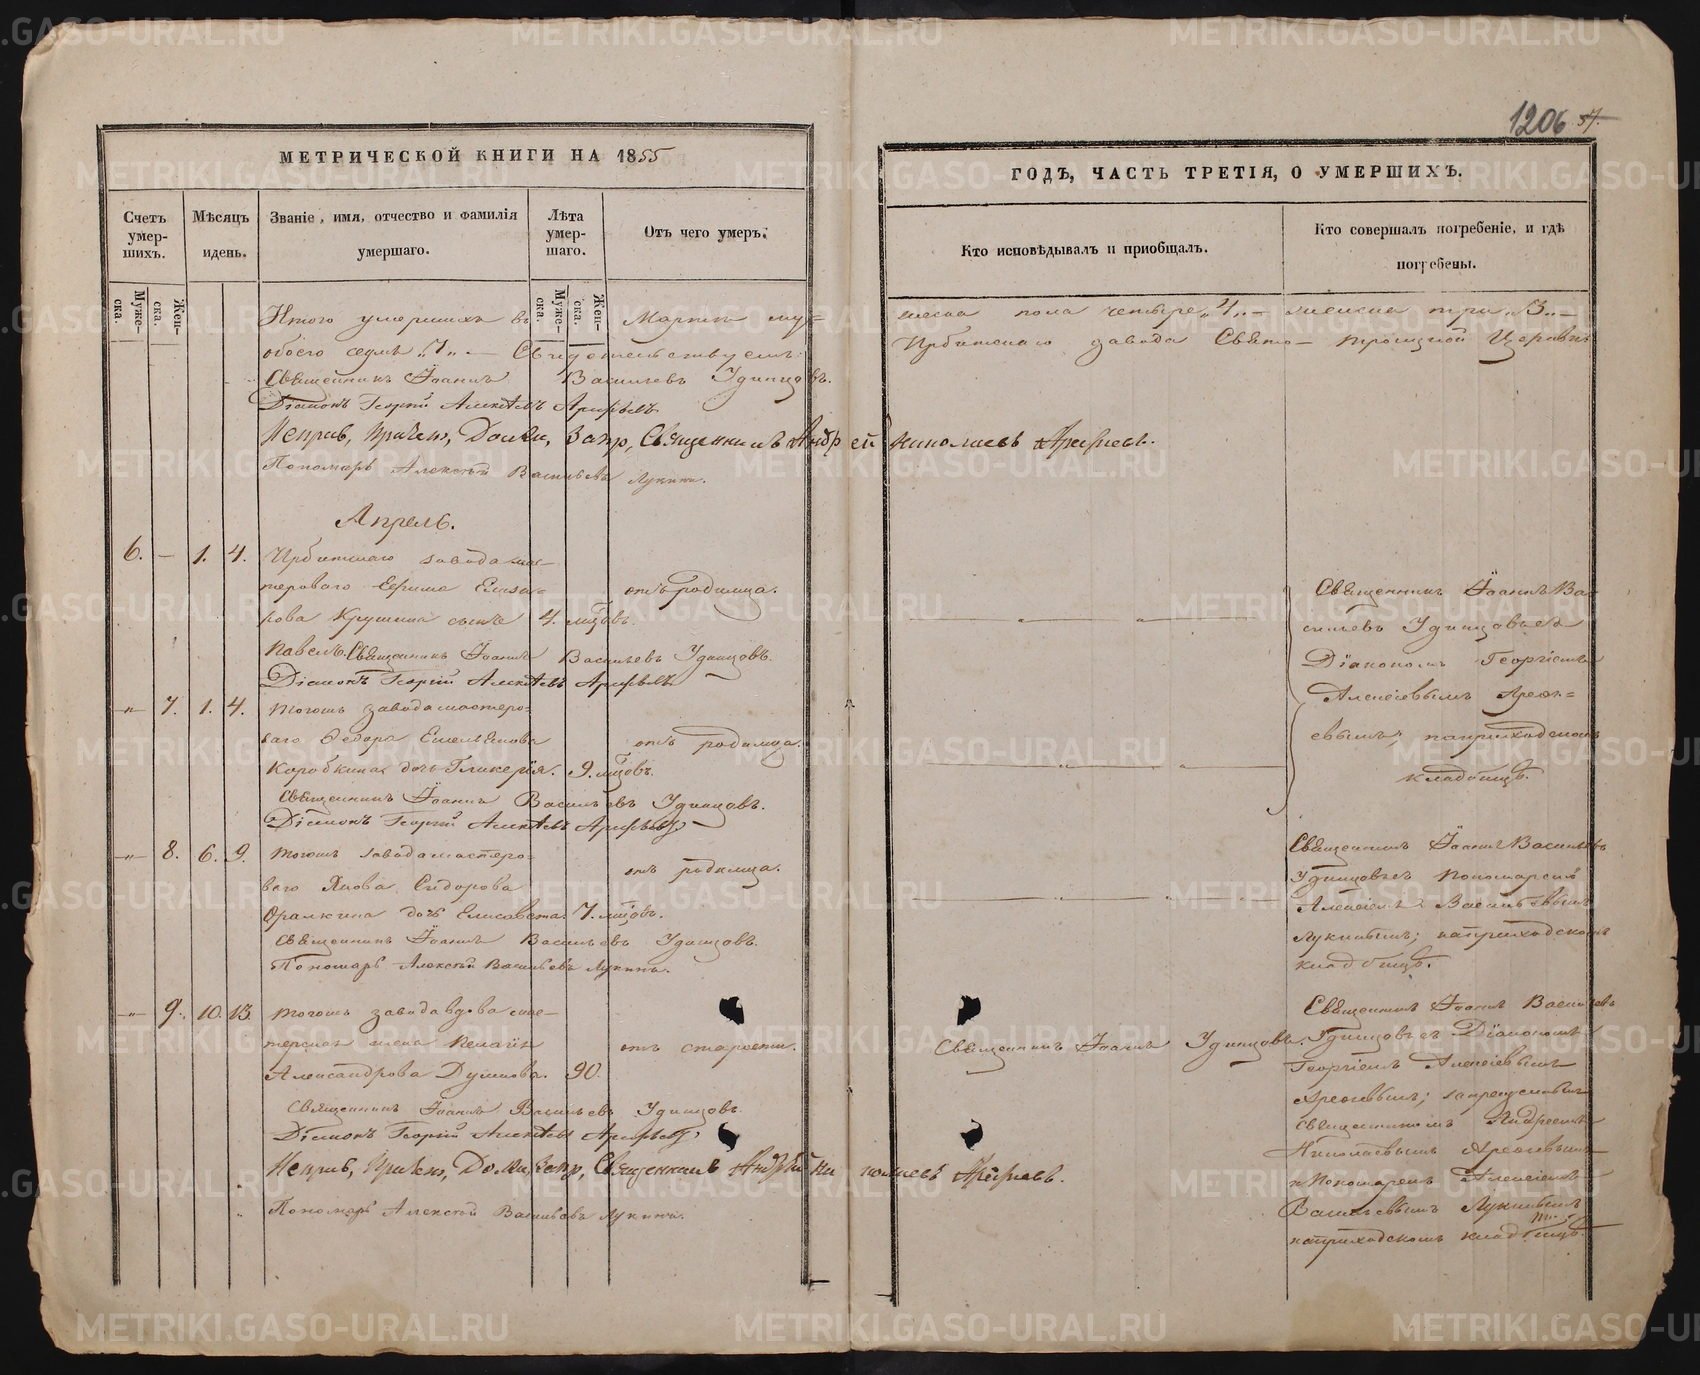 1206 57.
МЕТРИЧЕСКОЙ КНИГИ НА 1855
ГОДЪ, ЧАСТЬ ТРЕТІЯ, О УМЕРШИХЪ.
Счетъ умер-шихъ.
Мѣсяцъ и день.
Званіе, имя, отчество и фамилія умершаго.
Лѣта умер-шаго.
Отъ чего умеръ.
Кто исповѣдывалъ и пріобщалъ.
Кто совершалъ погребеніе, и гдѣ погребены.
Муже-ска.
Жен-ска.
Муже-ска.
Жен-ска.
Итого умершихъ въ Мартѣ му-
жеска пола четыре „4„ — женска три „3„ —
обоего семь „7„ — Свидетельствуемъ:
Ирбитскаго завода Свято-Троицкой Церкви
Священникъ Іоаннъ Васильевъ Удинцовъ.
Діаконъ Георгій Алексѣевъ Арефьевъ
Неприв, Причет, Должн, Запр, Священникъ Андрей Николаевъ Арефьевъ.
Пономарь Алексѣй Васильевъ Лукинъ.
Апрель.
6. — 1. 4. Ирбитскаго завода мас-
тероваго Ефима Елиза-
рова Крушина сынъ 4. мцовъ.
Павелъ.
отъ родимца.
Священникъ Іоаннъ Васильевъ Удинцовъ.
Діаконъ Георгій Алексѣевъ Арефьевъ
Священникъ Іоаннъ Ва-
сильевъ Удинцовъ съ
Діакономъ Георгіемъ
Алексіевымъ Арефь-
евымъ, на приходскомъ
кладбищѣ.
„ 7. 1. 4. Тогожъ завода мастеро-
ваго Федора Емельянова
Коробкина дочь Гликерія. 9. мцовъ.
отъ родимца.
Священникъ Іоаннъ Васильевъ Удинцовъ.
Діаконъ Георгій Алексѣевъ Арефьевъ
„ 8. 6. 9. Тогожъ завода мастеро-
ваго Якова Сидорова
дочь Елисавета. 7. мцовъ.
отъ родимца.
Священникъ Іоаннъ Васильевъ Удинцовъ.
Пономарь Алексѣй Васильевъ Лукинъ.
Священникъ Іоаннъ Васильевъ
Удинцовъ съ Пономаремъ
Алексіемъ Васильевымъ
Лукинымъ; на приходскомъ
кладбищѣ.
„ 9. 10. 13. Тогожъ завода вдова мас-
терская жена Пелагія
Александрова 90.
отъ старости.
Священникъ Іоаннъ Удинцовъ.
Священникъ Іоаннъ Васильевъ Удинцовъ.
Діаконъ Георгій Алексѣевъ Арефьевъ
Неприв, Причет, Должн, Запр, Священникъ Андрей Николаевъ Арефьевъ.
Пономарь Алексѣй Васильевъ Лукинъ.
Священникъ Іоаннъ Васильевъ
Удинцовъ съ Діакономъ
Георгіемъ Алексіевымъ
Арефьевымъ; запрещеннымъ
священникомъ Андреемъ
Николаевымъ Арефьевымъ
и Пономаремъ Алексіемъ
Васильевымъ Лукинымъ
на приходскомъ кладбищѣ.
METRIKI.GASO-URAL.RU